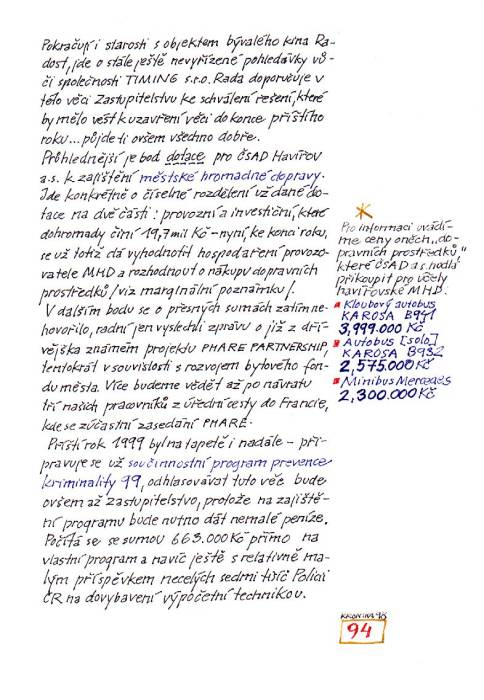 Pokračují i starosti s objektem bývalého kina Ra-
dost, jde o stále ještě nevyřízené pohledávky vů-
či společnosti TIMING s.r.o. Rada doporučuje v
této věci Zastupitelstvu ke schválení řešení, které
by mělo vést k uzavření věci do konce příštího
roku... půjde-li ovšem všechno dobře.
Průhlednější je bod dotace pro ČSAD Havířov
a.s. k zajištění městské hromadné dopravy.
Jde konkrétně o číselné rozdělení už dané do-
tace na dvě části: provozní a investiční, které
dohromady činí 19,7 mil Kč - nyní, ke konci roku,
se už totiž dá vyhodnotit hospodaření provozo-
vatele MHD a rozhodnout o nákupu dopravních
prostředků / viz marginální poznámku /.
V dalším bodu se o přesných sumách zatím ne-
hovořilo, radní jen vyslechli zprávu o již z dří-
vějška známém projektu PHARE PARTNERSHIP,
tentokrát v souvislosti s rozvojem bytového fon-
du města. Více budeme vědět až po návratu
tří našich pracovníků z úřední cesty do Francie,
kde se zúčastní zasedání PHARE.
Příští rok 1999 byl na tapetě i nadále - při-
pravuje se už součinnostní program prevence
kriminality 99, odhlasovávat tuto věc bude
ovšem až Zastupitelstvo, protože na zajiště-
ní programu bude nutno dát nemalé peníze.
Počítá se se sumou 663.000 Kč přímo na
vlastní program a navíc ještě s relativně ma-
lým příspěvkem necelých sedmi tisíc Policii
ČR na dovybavení výpočetní technikou.
Pro informaci uvádí-
me ceny oněch „do-
pravních prostředků",
které ČSAD a.s. hodlá
přikoupit pro účely
havířovské MHD.
Kloubový autobus
KAROSA B941
3,999.000 Kč
Autobus [solo]
KAROSA B932
2,575.000 Kč
Minibus Mercedes
2,300.000 Kč
KRONIKA 98
94